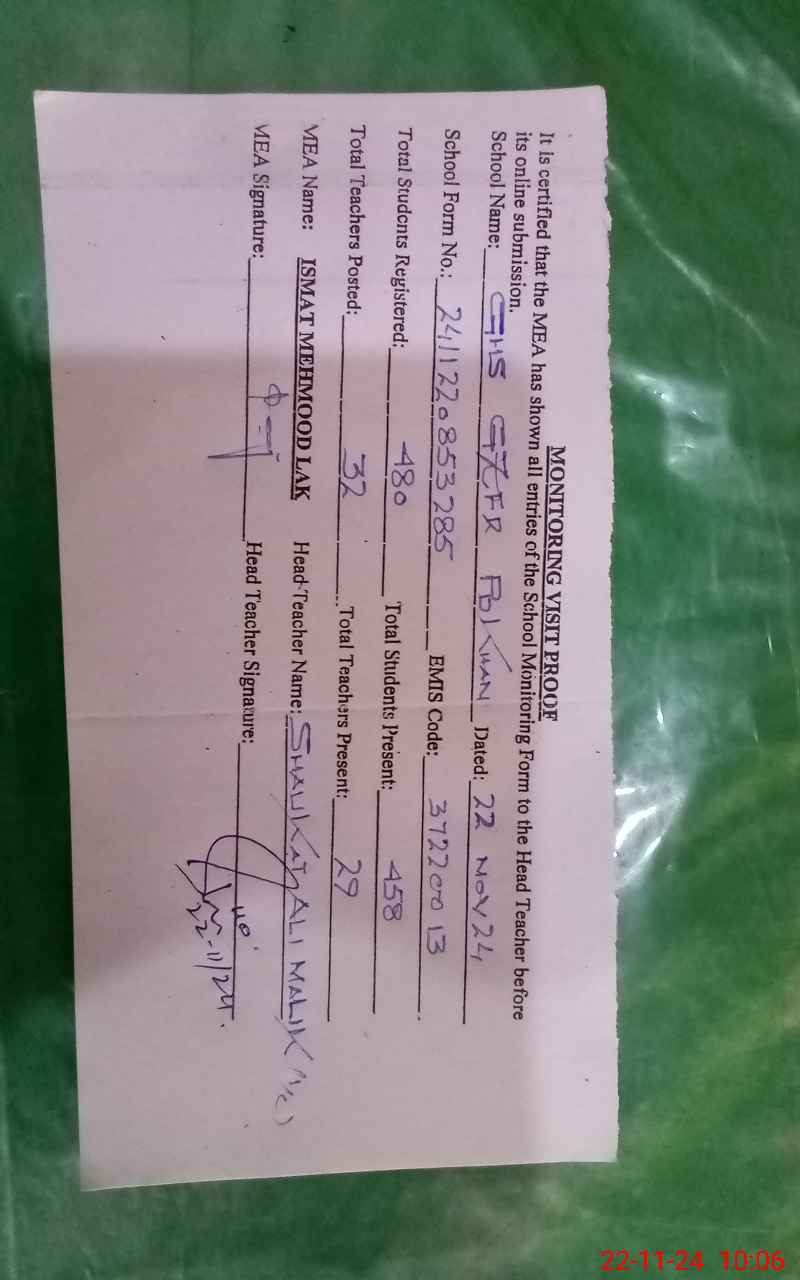 MONITORING VISIT PROOF
It is certified that the MEA has shown all entries of the School Monitoring Form to the Head Teacher before
its online submission.
School Name: GHS Dated: 22 NOV 24
School Form No.: 241122085 3285 EMIS Code: 37220013
Total Students Registered: 480 Total Students Present: 458
Total Teachers Posted: 32 Total Teachers Present: 29
MEA Name: ISMAT MEHMOOD LAK Head Teacher Name: SHAUKAT ALI MALIK (I/C)
MEA Signature: Head Teacher Signature:
22-11/24.
22-11-24 10:06